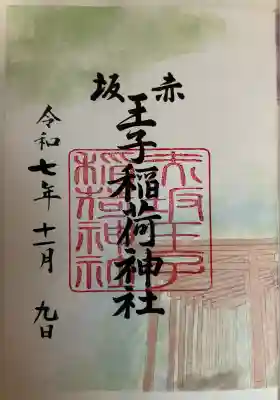 赤坂
王子稲荷神社
赤坂王子
稲荷神社
令和七年十一月九日